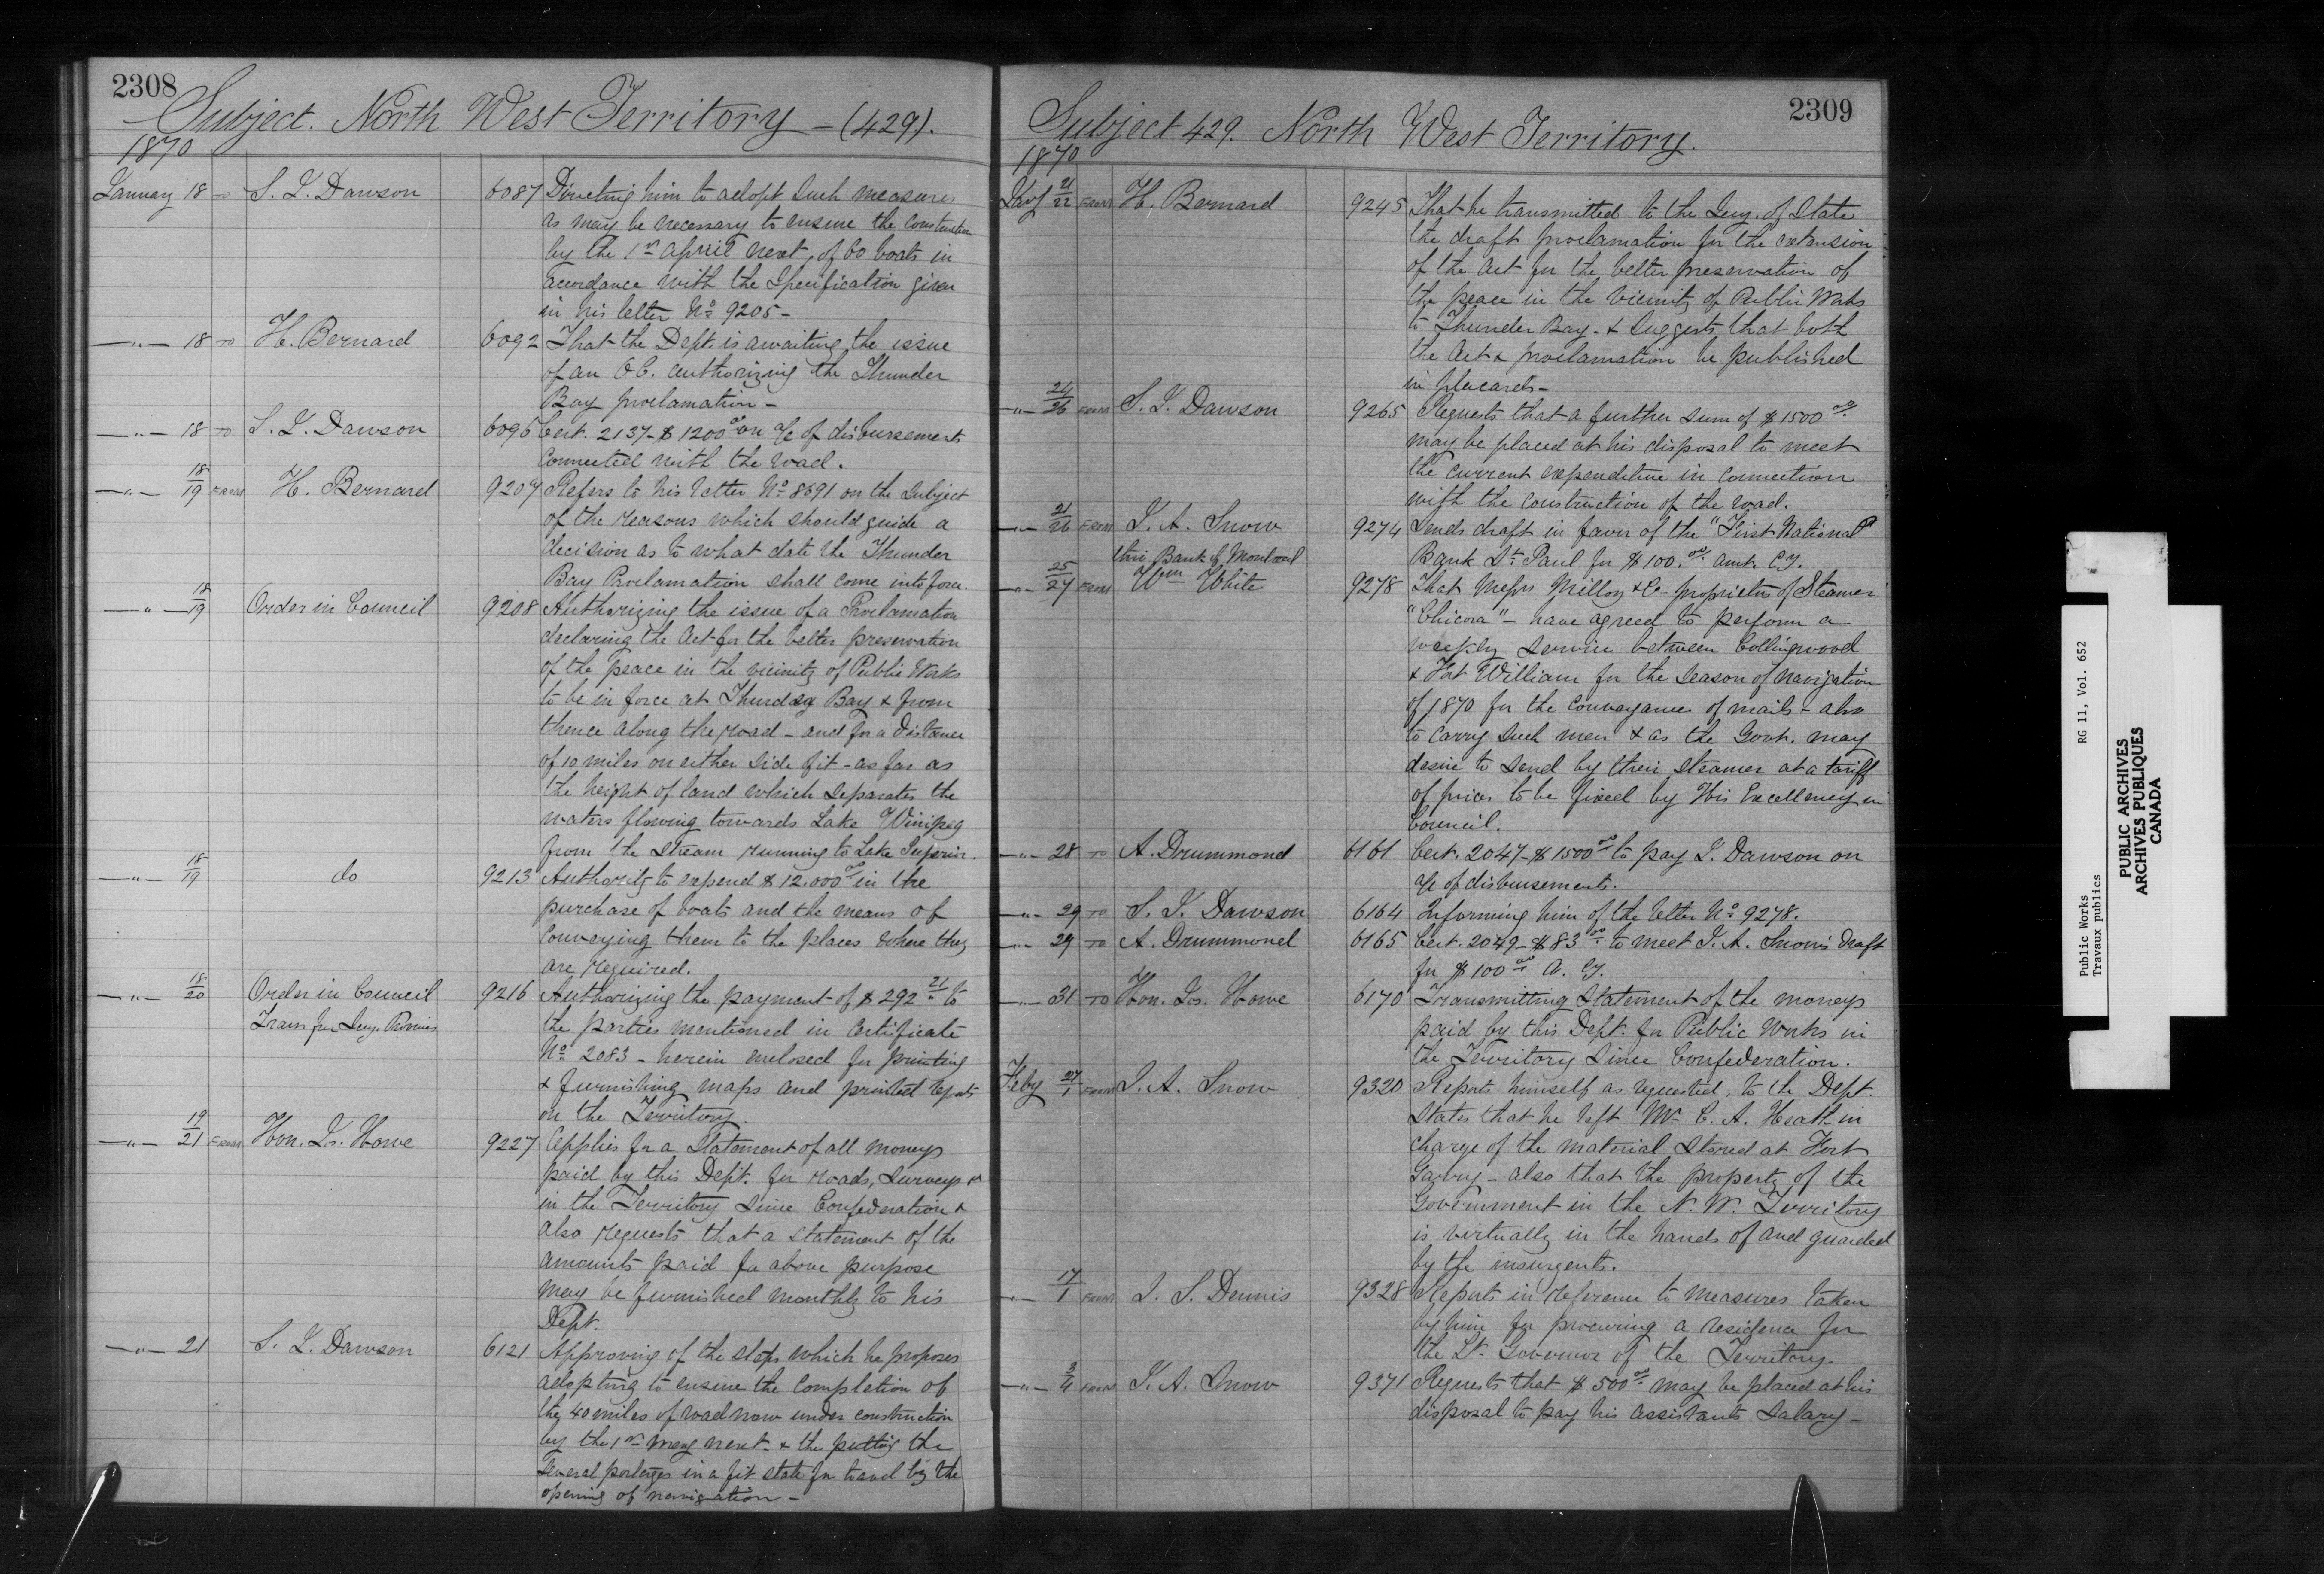 2308
Subject. North West Territory - (429).
1870
January 18 to S. J. Dawson 6087 Directing him to adopt such measures
as may be necessary to ensure the construction
by the 1st April next, of 60 boats in
accordance with the Specification given
in his letter No 9205 -
-"- 18 to H. Bernard 6092 That the Dept. is awaiting the issue
of an O.C. authorizing the Thunder
Bay proclamation -
-"- 18 to S. J. Dawson 6096 Cert. 2137 - $1200 00 on a/c of disbursements
connected with the road.
-"- 18/19 from H. Bernard 9207 Refers to his letter No 8691 on the subject
of the reasons which should guide a
decision as to what date the Thunder
Bay Proclamation shall come into force.
-"- 18/19 Order in Council 9208 Authorizing the issue of a Proclamation
declaring the Act for the better preservation
of the peace in the vicinity of Public Works
to be in force at Thunder Bay & from
thence along the road - and for a distance
of 10 miles on either side of it - as far as
the height of land which separates the
waters flowing towards Lake Winipeg
from the stream running to Lake Superior.
-"- 18/19 do 9213 Authority to expend $12.000 00 in the
purchase of boats and the means of
conveying them to the places where they
are required.
-"- 18/20 Order in Council 9216 Authorizing the payment of $292 21 to
Trans for Secy. Provinces the parties mentioned in Certificate
No 2083 - herein enclosed for printing
& furnishing maps and printed reports
on the Territory.
-"- 19/21 from Hon. Jos. Howe 9227 Applies for a Statement of all moneys
paid by this Dept. for roads, surveys &
in the Territory since Confederation &
also requests that a statement of the
amounts paid for above purpose
may be furnished monthly to his
Dept.
-"- 21 S. J. Dawson 6121 Approving of the steps which he proposes
adopting to ensure the completion of
the 40 miles of road now under construction
by the 1st May next. & the putting the
several portages in a fit state for travel by the
opening of navigation -
2309
Subject 429. North West Territory.
1870
Jany 21/22 from H. Bernard 9245 That he transmitted to the Secy. of State
the draft proclamation for the extension
of the Act for the better preservation of
the peace in the vicinity of Public Works
to Thunder Bay - & suggests that both
the Act & proclamation be published
in placards -
-"- 24/26 from S. J. Dawson 9265 Requests that a further sum of $1500 00
may be placed at his disposal to meet
the current expenditure in connection
with the construction of the road.
-"- 21/26 from J. A. Snow 9274 Sends draft in favor of the "First National
thro Bank of Montreal Bank St. Paul for $100. 00 amt. Cy.
-"- 25/27 from Wm White 9278 That Messrs Milloy & Co - proprietors of Steamer
"Chicora" - have agreed to perform a
weekly service between Collingwood
& Fort William for the season of navigation
of 1870 for the conveyance of mails - also
to carry such men & as the Govt. may
desire to send by their steamer at a tariff
of prices to be fixed by His Excellency in
Council.
-"- 28 to A. Drummond 6161 Cert. 2047 - $1500 00 to pay S. Dawson on
a/c of disbursements.
-"- 29 to S. J. Dawson 6164 Informing him of the letter No 9278.
-"- 29 to A. Drummond 6165 Cert. 2049 - $83 00 to meet J. A. Snow's draft
for $100 00 A. Cy.
-"- 31 to Hon. Jos. Howe 6170 Transmitting Statement of the moneys
paid by this Dept. for Public Works in
the Territory since Confederation.
Feby 27/1 from J. A. Snow 9320 Reports himself as requested, to the Dept.
States that he left Mr. C. A. Heath in
charge of the material stored at Fort
Garry - also that the property of the
Government in the N. W. Territory
is virtually in the hands of and guarded
by the insurgents.
-"- 17/1 from J. S. Dennis 9328 Reports in reference to measures taken
by him for procuring a residence for
the Lt. Governor of the Territory.
-"- 3/4 from J. A. Snow 9371 Requests that $500 00 may be placed at his
disposal to pay his assistants salary -
Public Works RG 11, Vol. 652
Travaux publics
PUBLIC ARCHIVES
ARCHIVES PUBLIQUES
CANADA